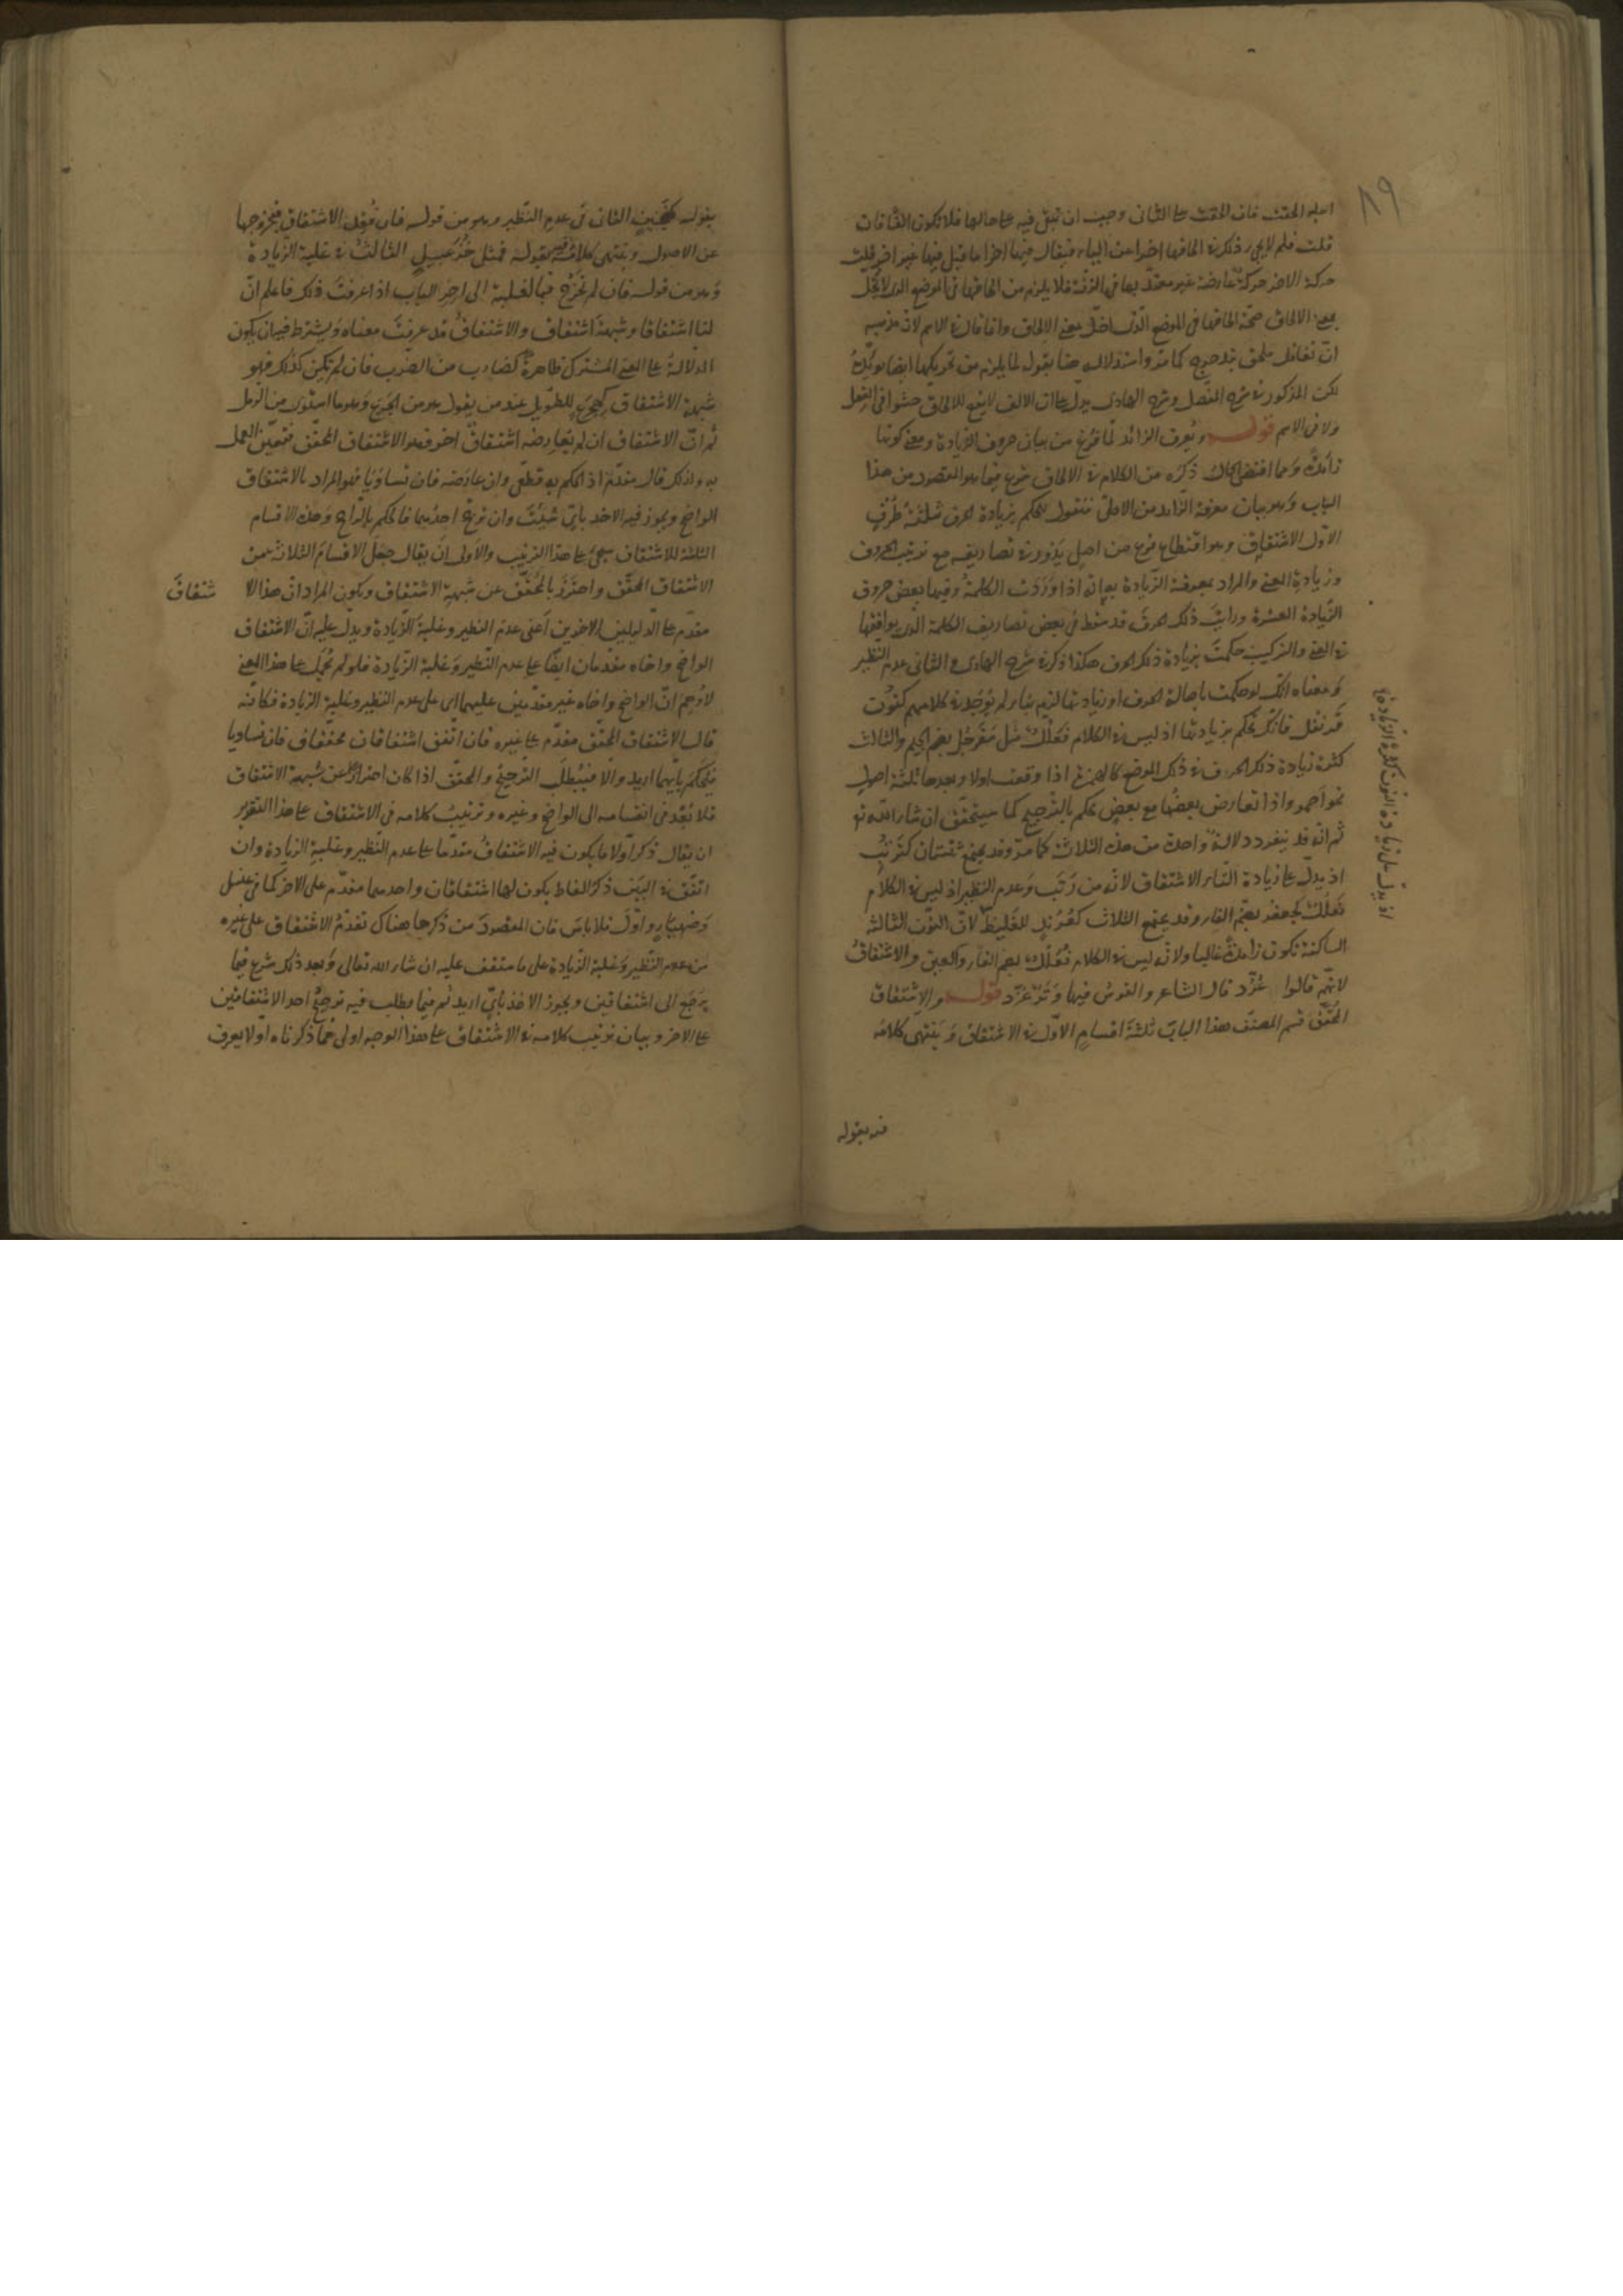 ٨٩
اصله الحقت فان الحقت على الثانى وجب ان تبقى فيه على حالها فلا تكون الفا فان
قلت فلم لا يجوز ذلك فى الحاقها اخرا عن الياء فيقال فيها اخرا ما قيل فيها غير اخر قلت
حركة الاخر حركة عارضة غير معتدّ بها فى الزنة فلا يلزم من الحاقها فى الموضع الذى لا تُخلّ
بمعنى الالحاق صحّة الحاقها فى الموضع الذى اخلّ بمعنى الالحاق وانما قال فى الاسم لانّ مذهبه
انّ تغافل ملحق بتدحرج كما مرّ واستدلاله هنا بقوله لما يلزم من تحريكها ايضا يؤيّده
لكن المذكور فى شرح المفصّل وشرح الهادى يدلّ على ان الالف لا يقع للالحاق حشوا فى الفعل
ولا فى الاسم قوله ويُعرف الزائد لمّا فرغ من بيان حروف الزيادة ومعنى كونها
زائدةً وما اقتضى الحال ذكره من الكلام فى الالحاق شرع فيما هو المقصود من هذا
الباب وهو بيان معرفة الزّائد من الاصلىّ فنقول يحكم بزيادة الحرف بثلثة طُرُقٍ
الاوّل الاشتقاق وهو اقتطاع فرع من اصلٍ يَدُور فى تصاريفه مع ترتيب الحروف
وزيادة المعنى والمراد بمعرفة الزّيادة به انّه اذا وَرَدَت الكلمةُ وفيها بعض حروف
الزّيادة العشرة ورايتَ ذلك الحرفَ قد سقط فى بعض تصاريف الكلمة الّتى يوافقها
فى المعنى والتركيب حكمتَ بزيادة ذلك الحرف هكذا ذكر فى شرح الهادى والثانى عدم النّظير
ومعناه انّك لو حكمت باصالة الحرف او زيادتها لزم بناء لم يُوجد فى كلامهم كنون
قَرَنفُل فانّك تحكم بزيادتها اذ ليس فى الكلام فَعَلُّلٌ مثل سَفَرجُل بضم الجيم والثالث
كثرة زيادة ذلك الحرف فى ذلك الموضع كالهمزة اذا وقعت اولا وبعدها ثلثة اصول
نحو اَحمر واذا تعارض بعضُها مع بعض يحكم بالتّرجيح كما سيتحقّق ان شاء اللّه تع
ثم انّه قد ينفرد دلالةٌ واحدة من هذه الثلاث كما مرّ وقد يجتمع ثنتان كتُرتُبٍ
اذ يدلّ على زيادة التاء الاشتقاق لانّه من رَتَب وعدم النظير اذ ليس فى الكلام
فُعلَلٌ كجُعفَر بضمّ الفاء وقد يجتمع الثلاث كعُرُندٍ للغليظ لانّ النّون الثالثة
الساكنة تكون زائدةً غالبا ولانّه ليس فى الكلام فُعُلّلٌ بضم الفاء والعين والاشتقاقُ
لانّهم قالوا عُرُدّ قال الشاعر والقوس فيها وَتَرٌ عُرُدّ قوله والاشتقاق
المُحقّق قسم المصنّف هذا الباب ثلثةَ اقسامٍ الاوّل فى الاشتقاق ويَنتهى كلامُه
فيه بقوله
اذ يدلّ على زيادة النون كثرة الزيادة
بقوله كمَنجَنِيقٍ الثانى فى عدم النّظير وهو من قوله فان فُقِد الاشتقاق فبخروجها
عن الاصول وينتهى كلامُه فيه بقوله فمثل خُزَعبِيلٍ الثالث فى غلبة الزّيادة
وهو من قوله فان لم تَخرُج فبالغلبة الى اخر الباب اذا عرفتَ ذلك فاعلم انّ
لنا اشتقاقا وشبهةَ اشتقاقٍ والاشتقاقُ قد عرفتَ معناه ويشترط فيه ان يكون
الدلالةُ على المعنى المشترك ظاهرةً كضارب من الضّرب فان لم تكن كذلك فهو
شبهة الاشتقاق كهِجرَعٍ للطّويل عند من يقول هو من الجَرَع وهو ما استوى من الرمل
ثم انّ الاشتقاق ان لم يعارضه اشتقاقٌ اخر فهو الاشتقاق المحقّق فتعيّن العمل
به ولذلك قال مقدّم اذ الحكم به قطعىّ وان عارضه فان تساوَيا فهو المراد بالاشتقاق
الواضح ويجوز فيه الاخذ بايّ شئتَ وان ترجّح احدُهما فالحكم بالرّاجح وهذه الاقسام
الثلثة للاشتقاق يجئ على هذا الترتيب والاولى ان يقال جعل الاقسامَ الثلاث من
الاشتقاق المحقّق واحترز بالمُحقّق عن شبهة الاشتقاق ويكون المراد انّ هذا الا
شتقاق
مقدّم على الدّليلين الاخرين اَعنى عدم النظير وغلبةَ الزّيادة ويدلّ عليه انّ الاشتقاق
الواضح واخاه مقدّمان ايضًا على عدم النّظير وغلبة الزّيادة فلو لم يُحمل على هذا المعنى
لاَوهَمَ انّ الواضح واخاه غير مقدّمين عليهما اى على عدم النظير وغلبة الزيادة فكانّه
قال الاشتقاق المحقّق مقدّم على غيره فان اتّفق اشتقاقان محقّقان فان تساويا
فيُحكَم بايّهما اريد والا فيُطلَب الترجيحُ والمحقّق اذا كان احترازا عن شبهة الاشتقاق
فلا بُعد فى انقسامه الى الواضح وغيره وترتيبُ كلامه فى الاشتقاق على هذا التقرير
ان يقال ذكر اوّلا ما يكون فيه الاشتقاقُ مقدّما على عدم النّظير وغلبة الزيادة وان
اتّفق فى البَين ذكرُ الفاظ يكون لها اشتقاقان واحدهما مقدّم على الاخر كما فى عنسل
وضهياءٍ واوّل فلا باس فان المقصودَ من ذكرها هناك تقدّمُ الاشتقاق على غيره
من عدم النّظير وغلبة الزيادة على ما ستقف عليه ان شاء الله تعالى وبعد ذلك شرع فيما
يَرجَع الى اشتقاقين ويجوز الاخذ بايٍّ اريد ثم فيما يطلب فيه ترجيحُ احد الاشتقاقين
على الاخر وبيان ترتيب كلامه فى الاشتقاق على هذا الوجه اولى ممّا ذكرناه اوّلا يعرف